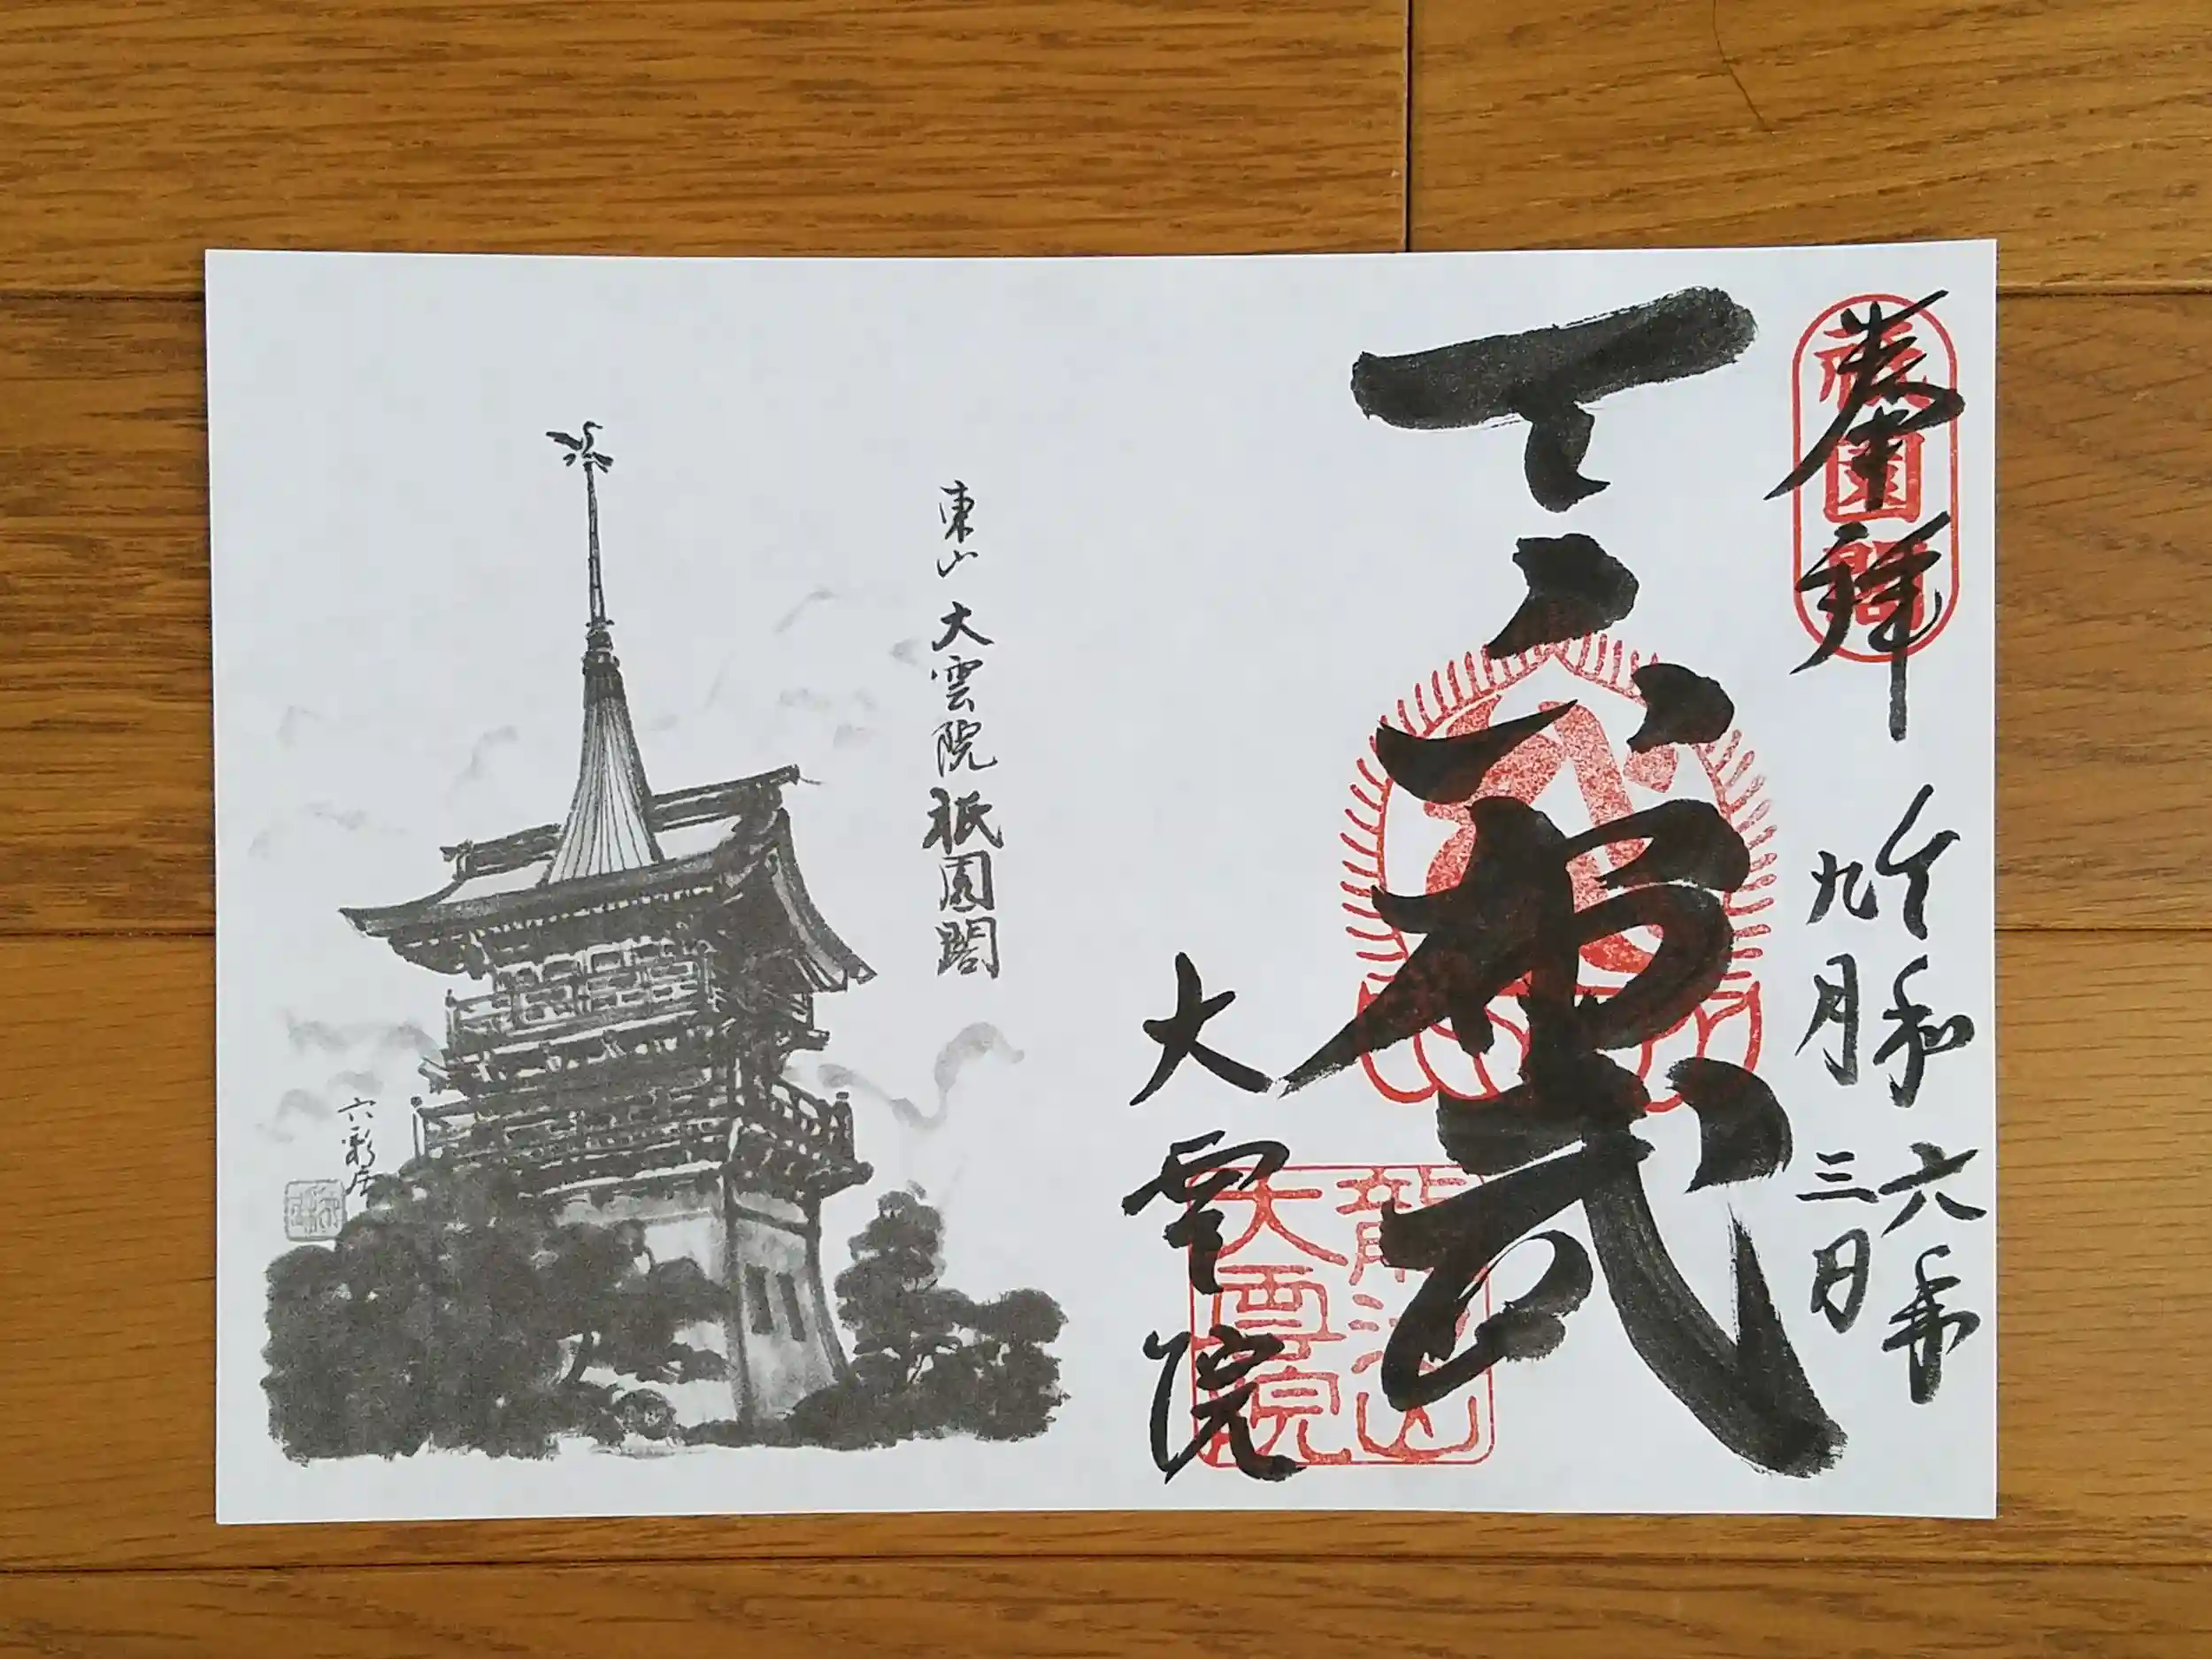 奉拝
祇園閣
令和六年
九月三日
天下布武
龍池山
大雲院
大雲院
東山 大雲院 祇園閣
六彩居